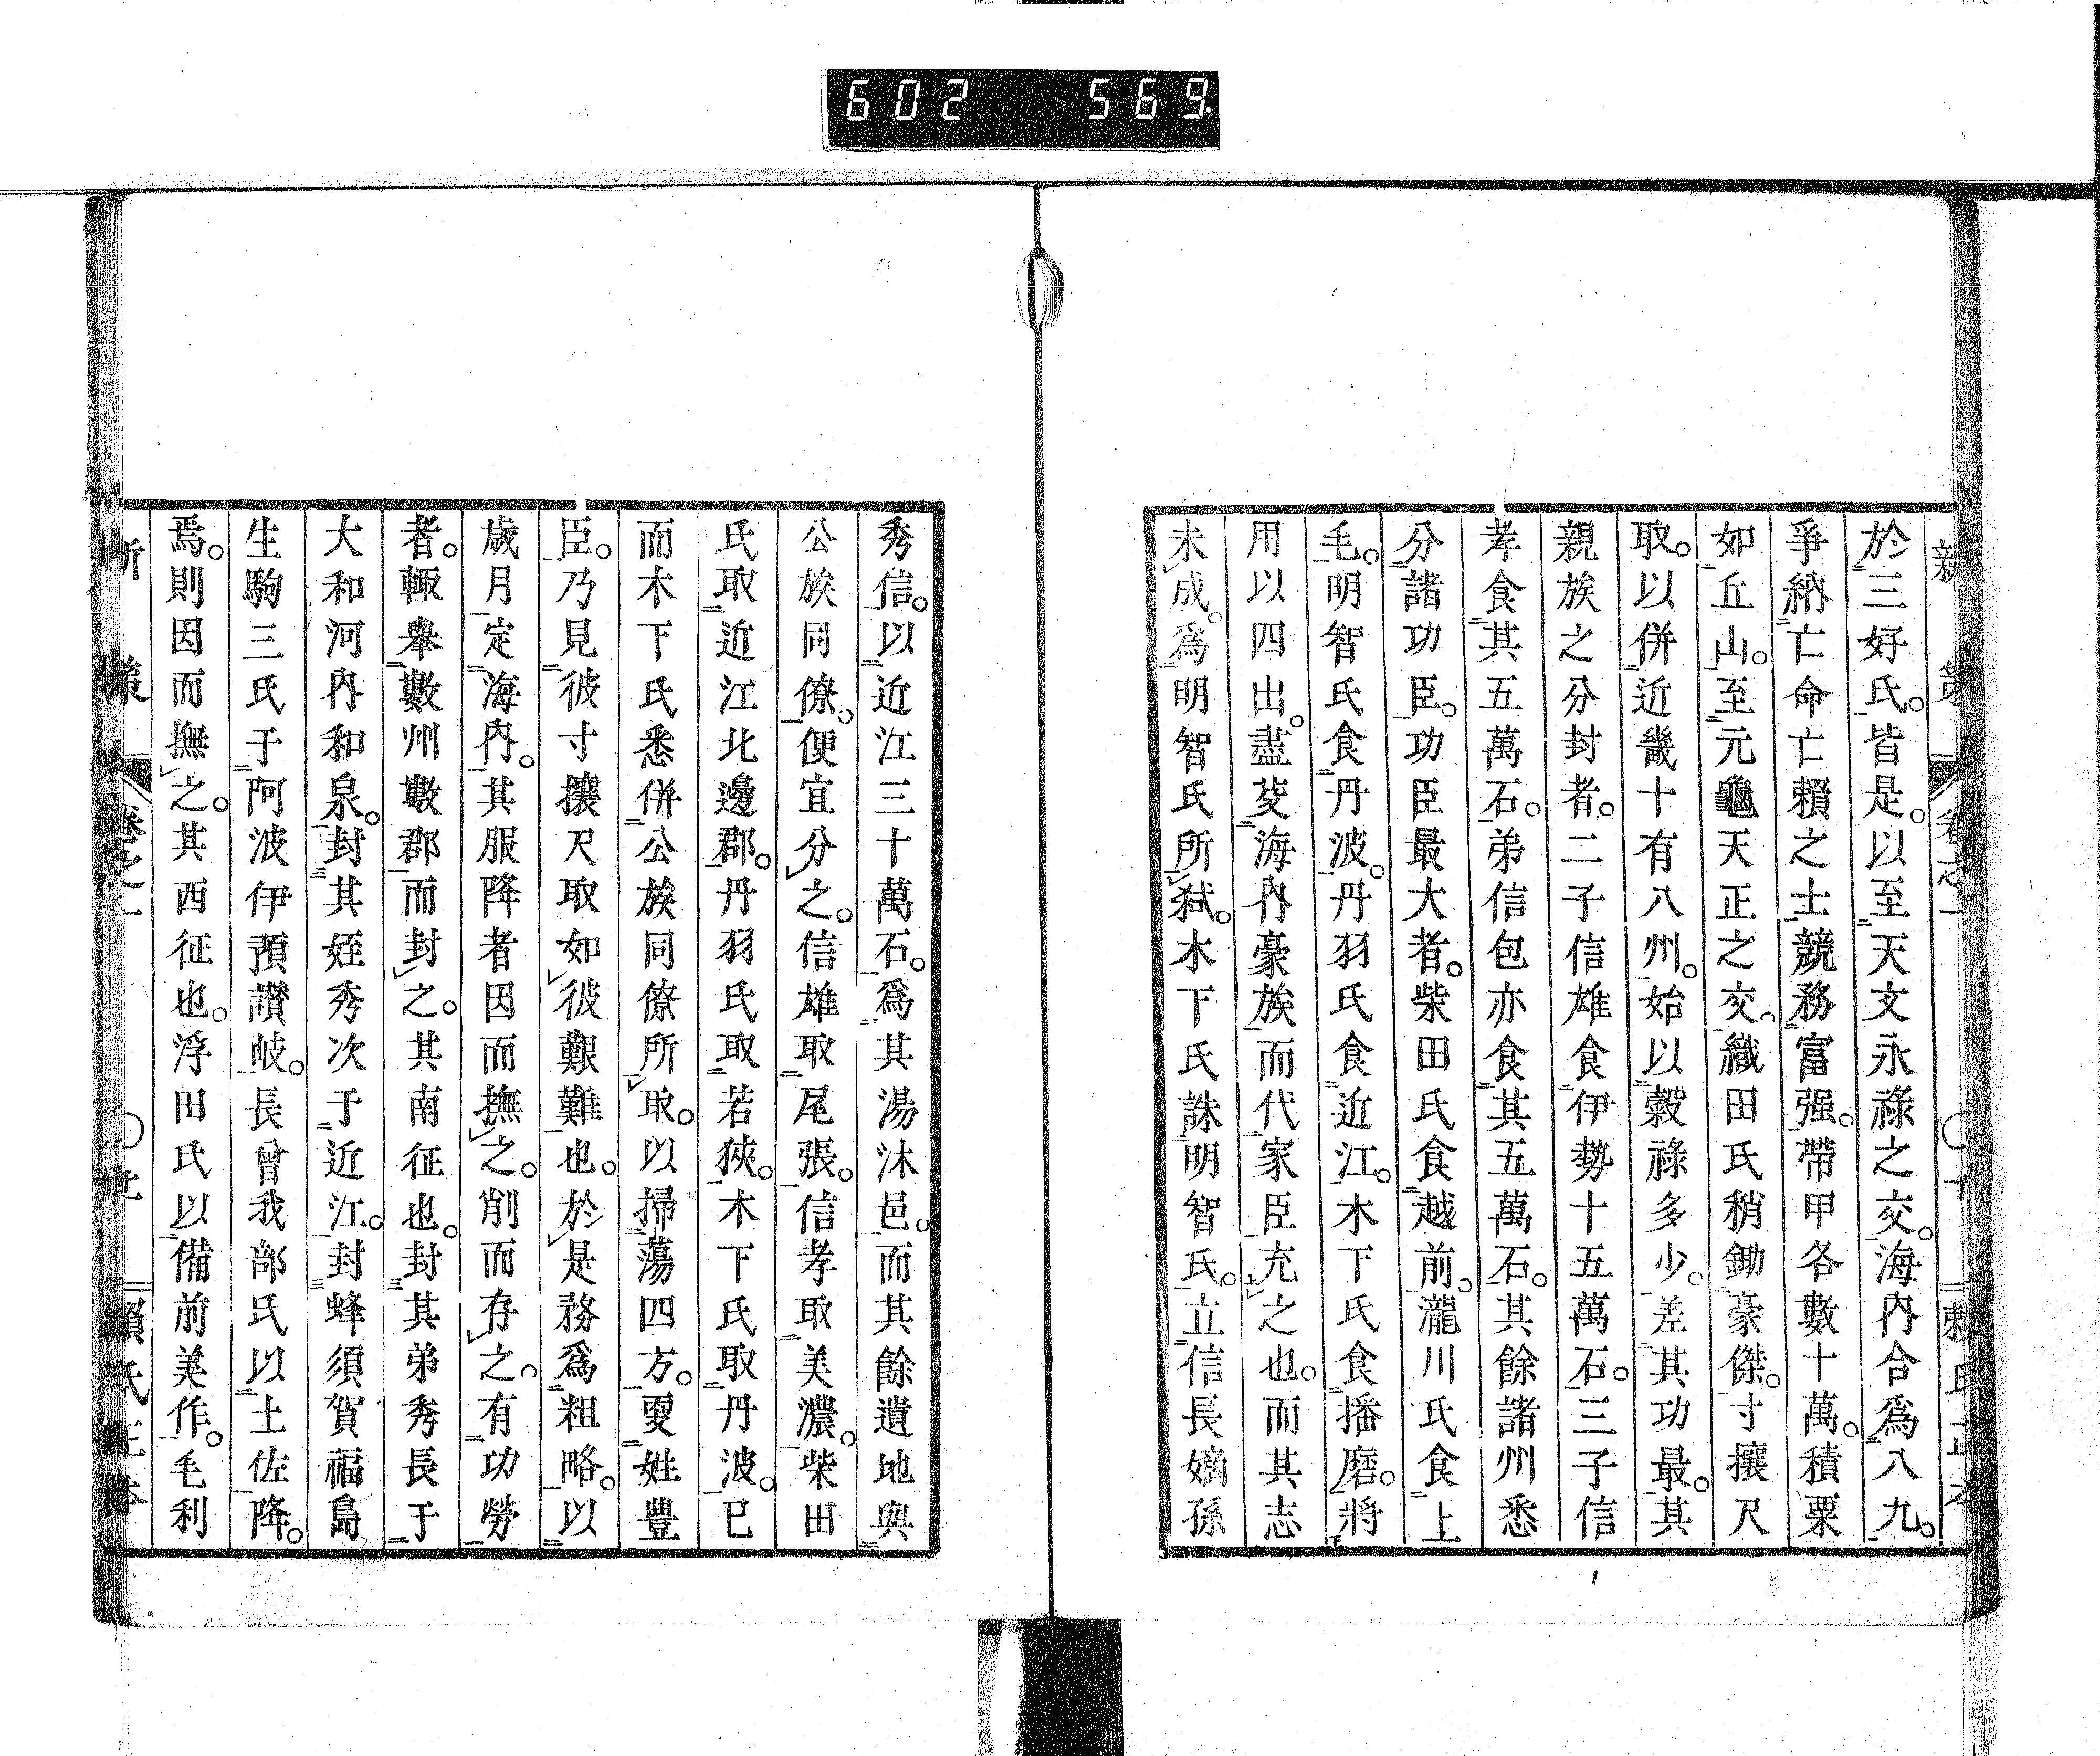 602 569.
新策 卷之一 〇十 賴氏正本
於三好氏。皆是。以至天文永祿之交。海內合爲八九。
爭納亡命亡賴之士競務富强。帶甲各數十萬。積粟
如丘山。至元龜天正之交。織田氏稍鋤豪傑。寸攘尺
取。以併近畿十有八州。始以穀祿多少。差其功最。其
親族之分封者。二子信雄食伊勢十五萬石。三子信
孝食其五萬石。弟信包亦食其五萬石。其餘諸州悉
分諸功臣。功臣最大者。柴田氏食越前。瀧川氏食上
毛。明智氏食丹波。丹羽氏食近江。木下氏食播磨。將
用以四出。盡芟海內豪族而代家臣充之也。而其志
未成。爲明智氏所弑。木下氏誅明智氏。立信長嫡孫
秀信。以近江三十萬石。爲其湯沐邑。而其餘遺地與
公族同僚。便宜分之。信雄取尾張。信孝取美濃。柴田
氏取近江北邊郡。丹羽氏取若狹。木下氏取丹波。已
而木下氏悉併公族同僚所取。以掃蕩四方。更姓豐
臣。乃見彼寸攘尺取如彼艱難也。於是務爲粗略。以
歲月定海內。其服降者因而撫之。削而存之。有功勞
者。輙舉數州數郡而封之。其南征也。封其弟秀長于
大和河內和泉。封其姪秀次于近江。封蜂須賀福島
生駒三氏于阿波伊預讚岐。長曾我部氏以土佐降。
焉。則因而撫之。其西征也。浮田氏以備前美作。毛利
新策 卷之一 賴氏正本